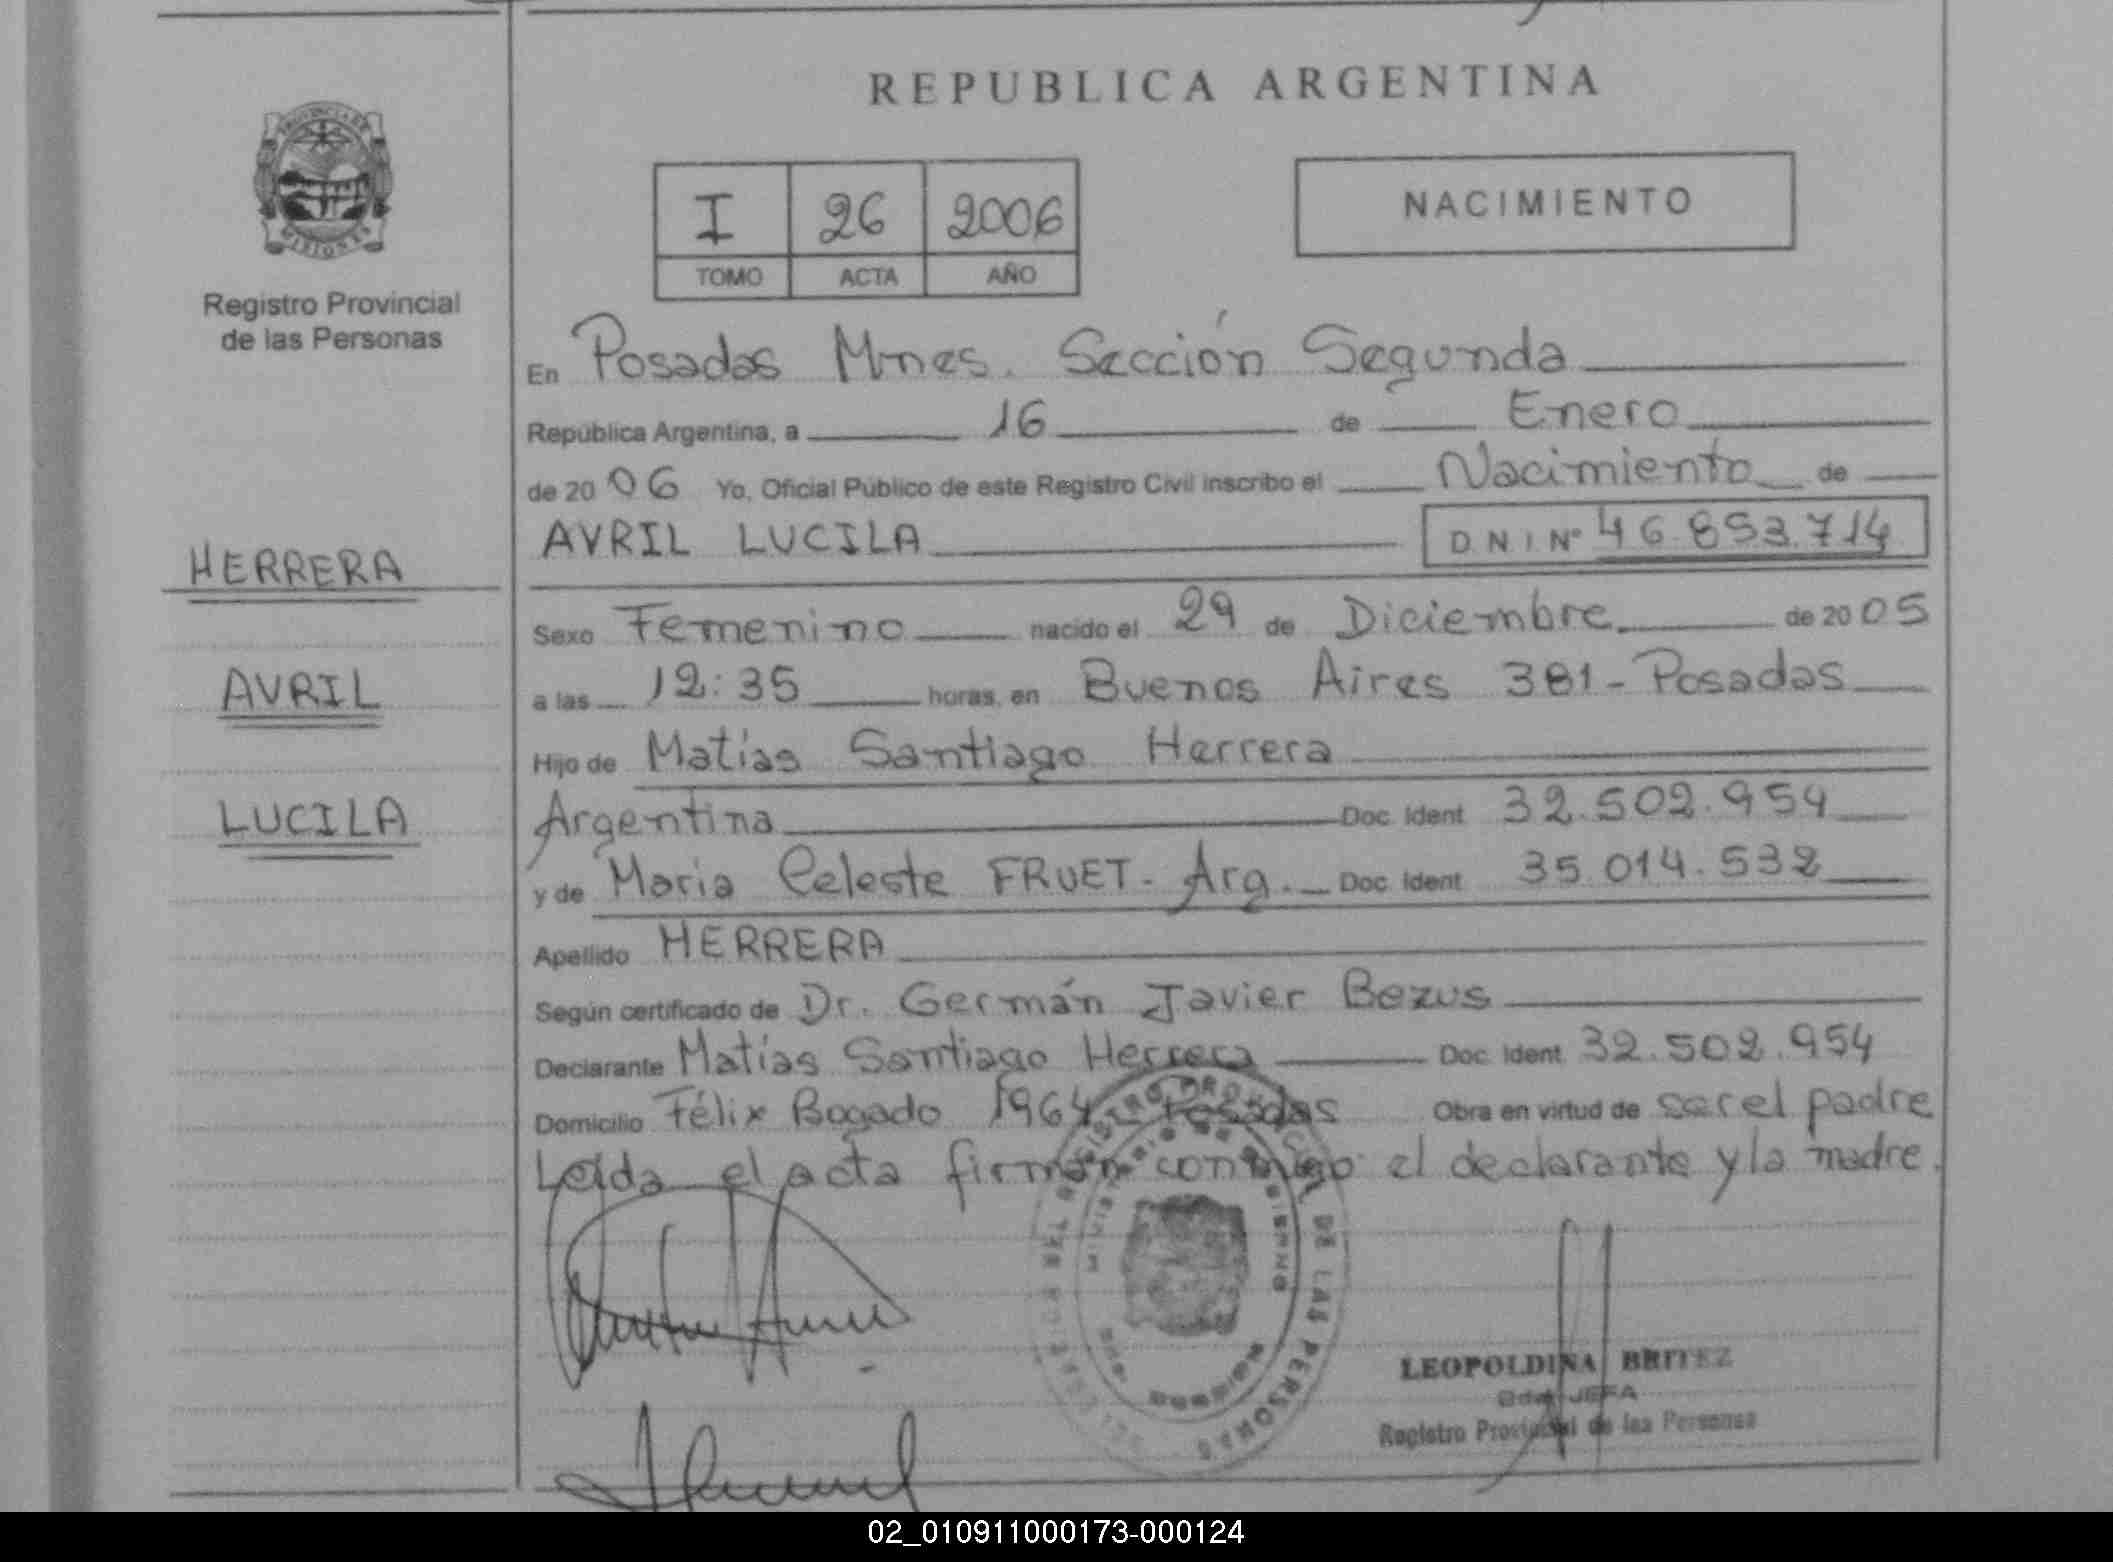 REPUBLICA ARGENTINA
PROVINCIA DE
MISIONES
Registro Provincial
de las Personas
I 26 2006
TOMO ACTA AÑO
NACIMIENTO
En Posadas Mnes. Sección Segunda
República Argentina, a 16 de Enero
de 2006 Yo, Oficial Público de este Registro Civil inscribo el Nacimiento de
AVRIL LUCILA D.N.I. Nº 46.853.714
HERRERA
AVRIL
LUCILA
Sexo Femenino nacido el 29 de Diciembre de 2005
a las 12:35 horas, en Buenos Aires 381 - Posadas
Hijo de Matías Santiago Herrera
Argentina Doc. Ident. 32.502.954
y de Maria Celeste FRUET - Arg. Doc. Ident. 35.014.532
Apellido HERRERA
Según certificado de Dr. Germán Javier Bezus
Declarante Matías Santiago Herrera Doc. Ident. 32.502.954
Domicilio Félix Bogado 1964 - Posadas Obra en virtud de ser el padre
Leída el acta firman conmigo el declarante y la madre.
REGISTRO PROVINCIAL DE LAS PERSONAS
LEOPOLDINA BRITEZ
JEFA
Registro Provincial de las Personas
02_010911000173-000124